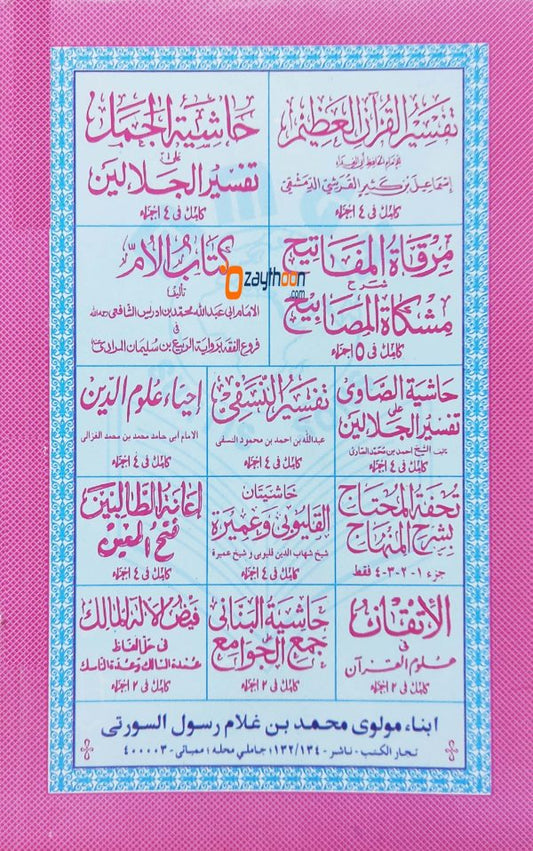 تفسير القرآن العظيم
للإمام الحافظ أبي الفداء
إسماعيل بن كثير القرشي الدمشقي
كامل في ٤ اجزاء
حاشية الجمل
على
تفسير الجلالين
كامل في ٤ اجزاء
مرقاة المفاتيح
شرح
مشكاة المصابيح
كامل في ٥ اجزاء
كتاب الأم
تأليف
الامام ابي عبد الله محمد بن ادريس الشافعي
في
فروع الفقه برواية الربيع بن سليمان المرادي
zaythoon
.com
حاشية الصاوى
على
تفسير الجلالين
تأليف الشيخ احمد بن محمد الصاوى
كامل في ٤ اجزاء
تفسير النسفي
عبدالله بن احمد بن محمود النسفى
كامل في ٤ اجزاء
إحياء علوم الدين
الامام أبى حامد محمد بن محمد الغزالى
كامل في ٤ اجزاء
تحفة المحتاج
بشرح المنهاج
جزء ١-٢-٣-٤ فقط
حاشيتان
القليوبى وعميرة
شيخ شهاب الدين قليوبى و شيخ عميرة
كامل في ٤ اجزاء
إعانة الطالبين
فتح المعين
كامل في ٤ اجزاء
الإتقان
في
علوم القرآن
كامل في ٢ اجزاء
حاشية البناني
على
جمع الجوامع
كامل في ٢ اجزاء
فيض الإله المالك
في حل الفاظ
عمدة السالك وعدة الناسك
كامل في ٢ اجزاء
ابناء مولوى محمد بن غلام رسول السورتى
تجار الكتب - ناشر - ١٣٢/١٣٤، جاملي محله؛ ممبائى - ٤٠٠٠٠٣